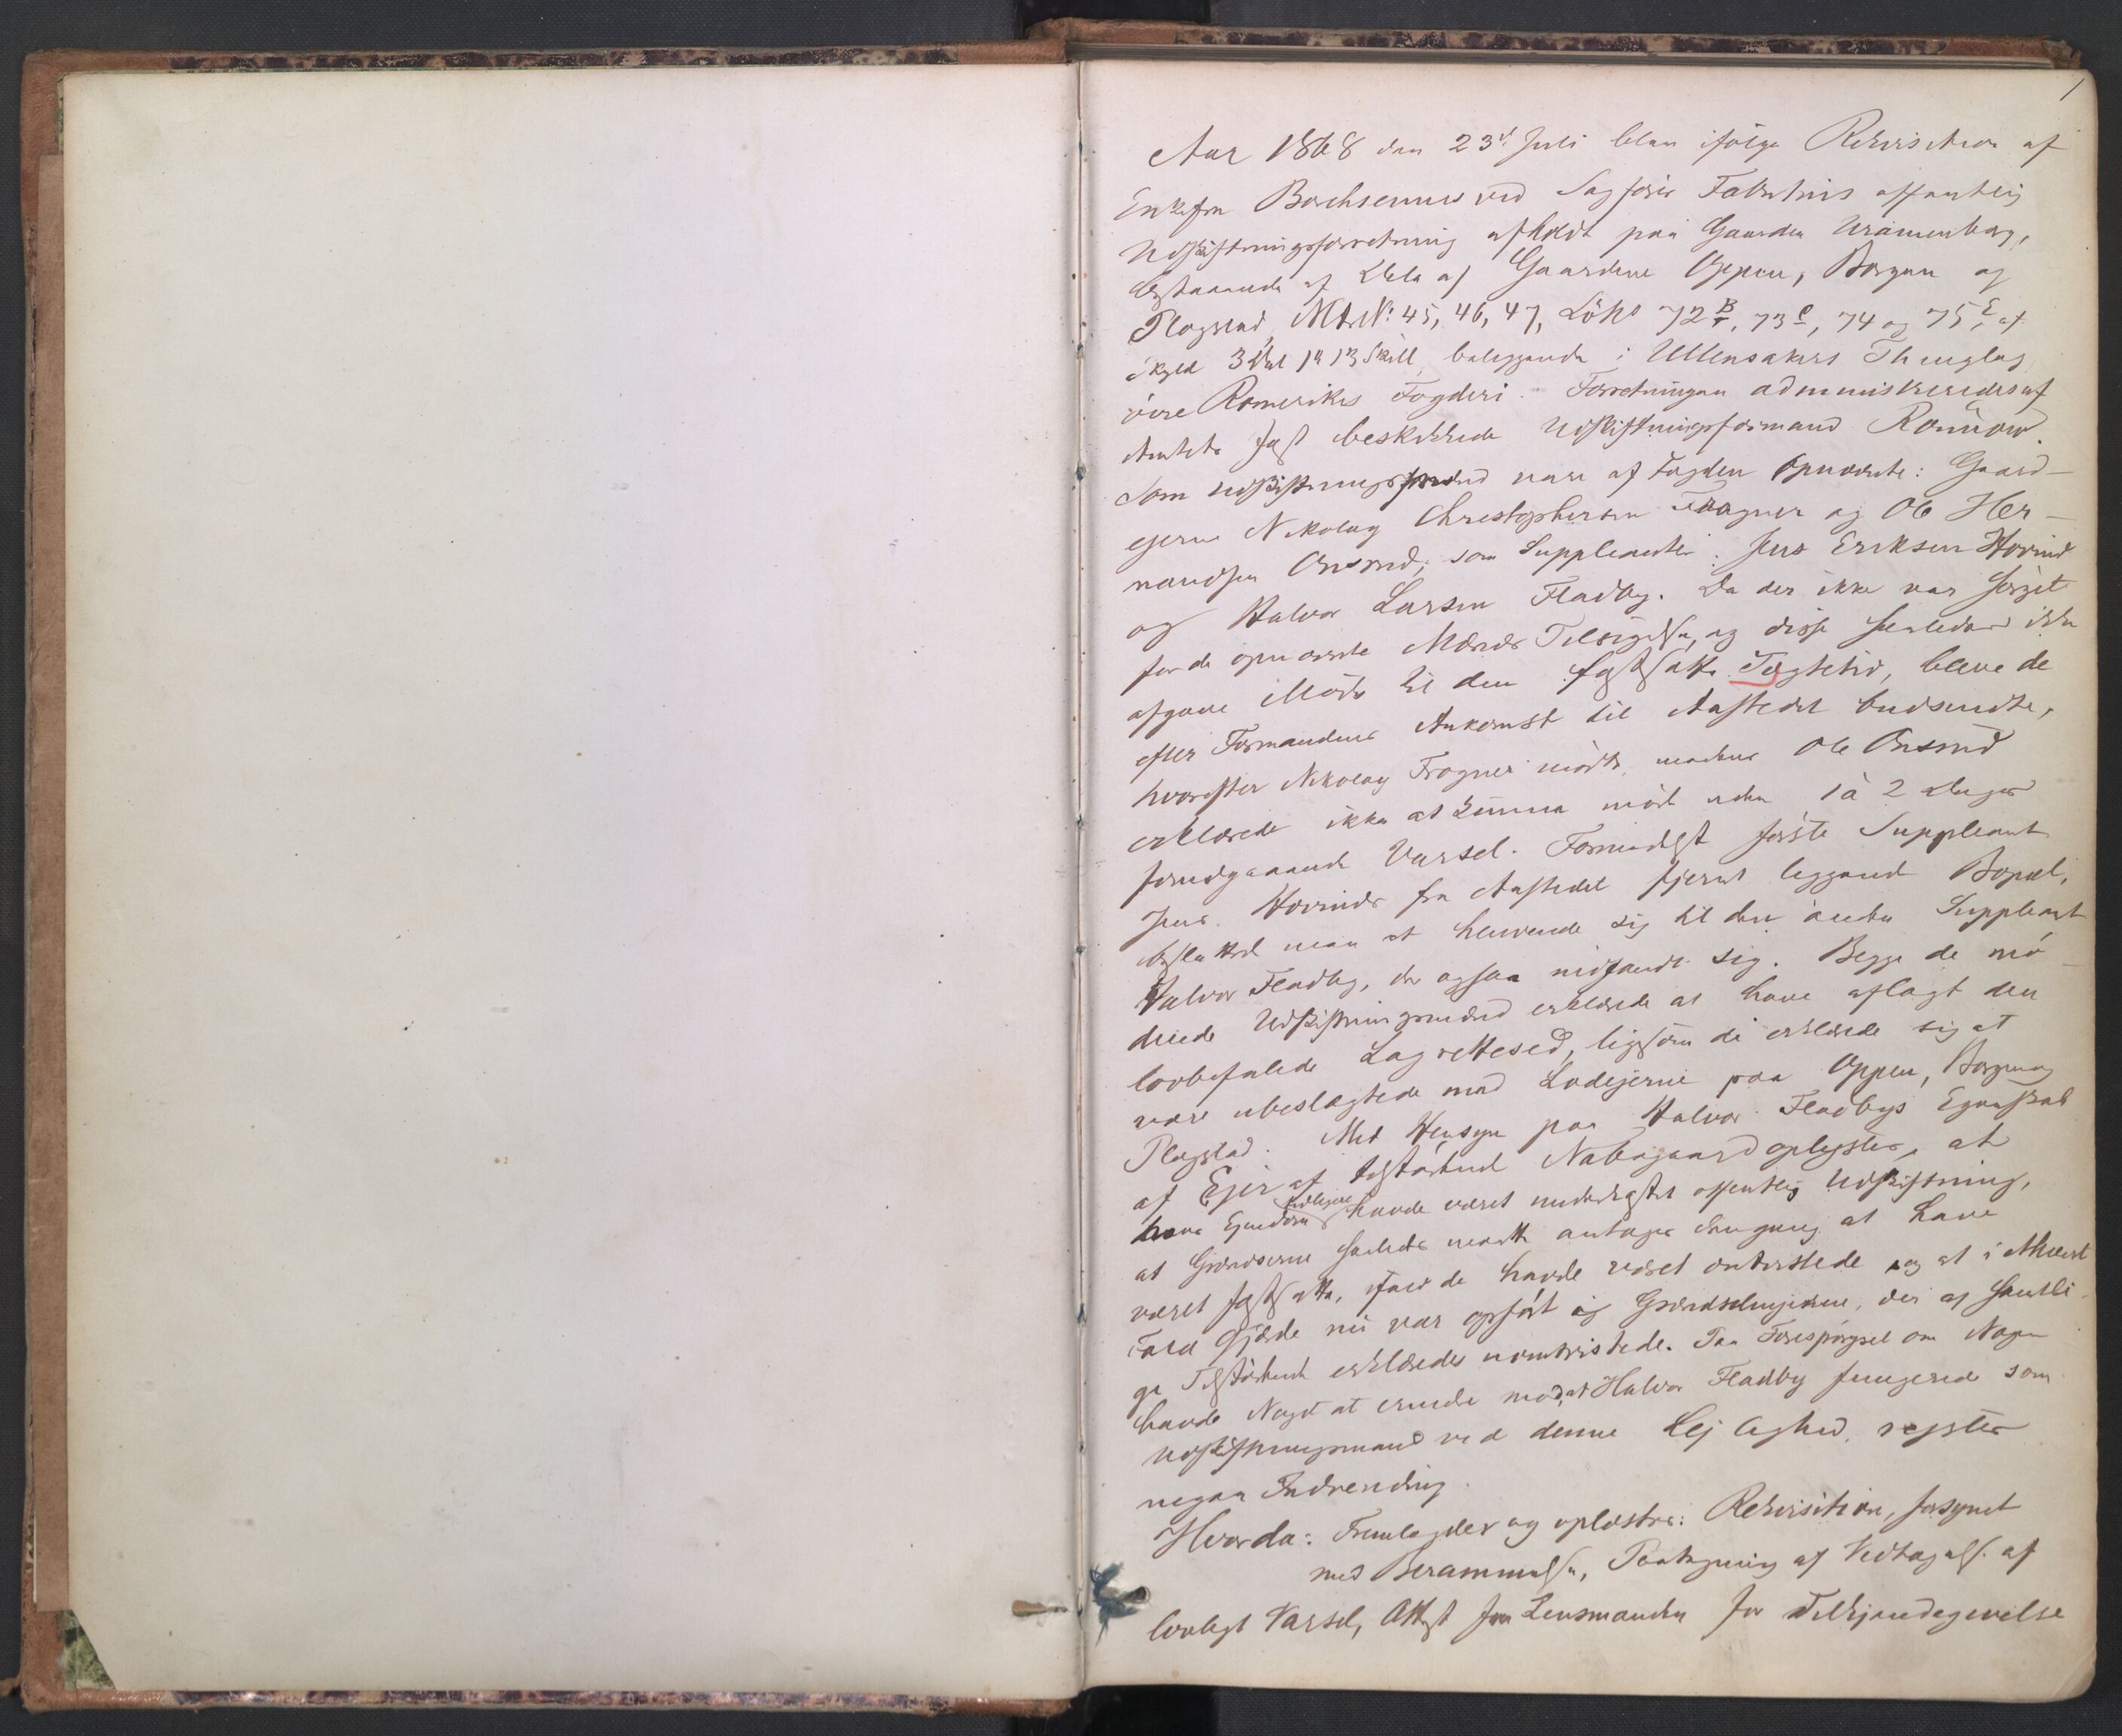 1
Aar 1868 den 23d Juli blev ifølge Rekvisition af
Enkefru Borchsenius ved Sagfører Fabritius offentlig
Udskiftningsforretning afholdt paa Gaarden
bestaaende af Dele af Gaardene Oppen, Borgen og
Plogstad, Mtr N: 45, 46, 47, Löbs 72 B, 73 c, 74 og 75 af
Skyld 3 Dal 1 13 Skill beliggende i Ullensakers Thinglag
övre Romerikes Fogderi. Forretningen administreredes af
Amtets fast beskikkede Udskiftningsformand
Som Udskiftningsmænd vare af Fogden opnævnte: Gaard-
ejerne Nikolay Christophersen Frogner og Ole Her-
mandsen Onsrud; som Suppleanter: Jens Eriksen Hovind
og Halvor Larsen Fladby. Da der ikke var sørget
for de opnævnte Mænds Tilsigelse, og disse saaledes ikke
afgave Møde til den fastsatte Tægtetid, bleve de
efter Formandens Ankomst til Aastedet budsendte,
hvorefter Nikolay Frogner mødte, medens Ole Onsrud
erklærede ikke at kunne møde uden 1 à 2 Dages
forudgaaende Varsel. Formedelst første Suppleant
Jens Hovinds fra Aastedet fjernt liggende Bopæl,
besluttede man at henvende sig til den anden Suppleant
Halvor Fladby, der ogsaa indfandt sig. Begge de mö-
dende Udskiftningsmænd erklærede at have aflagt den
lovbefalede Lagrettesed, ligesom de erklærede sig at
være ubeslægtede med Lodejerne paa Oppen, Borgen og
Plogstad. Med Hensyn paa Halvor Fladbys Egenskab
af Ejer af tilstødende Nabogaard oplystes, at
Ejendom tidligere havde været underkastet offentlig Udskiftning,
at Grændserne saaledes maatte antages engang at have
været fastsatte, ifald de havde været omtvistede, og at i ethvert
Fald Gjærde nu var opført i Grændselinjerne, der af samtli-
ge Tilstødende erklæredes uomtvistede. Paa Forespørgsel om Nogen
havde Noget at erindre mod, at Halvor Fladby fungerede som
Udskiftningsmand ved denne Lejlighed, reistes
ingen Indvending.
Hvorda: Fremlagdes og oplæstes: Rekvisition, forsynet
med Berammelse, Paategning af Vedtagelse af
lovligt Varsel, Attest fra Lensmanden for Tilkjendegivelse